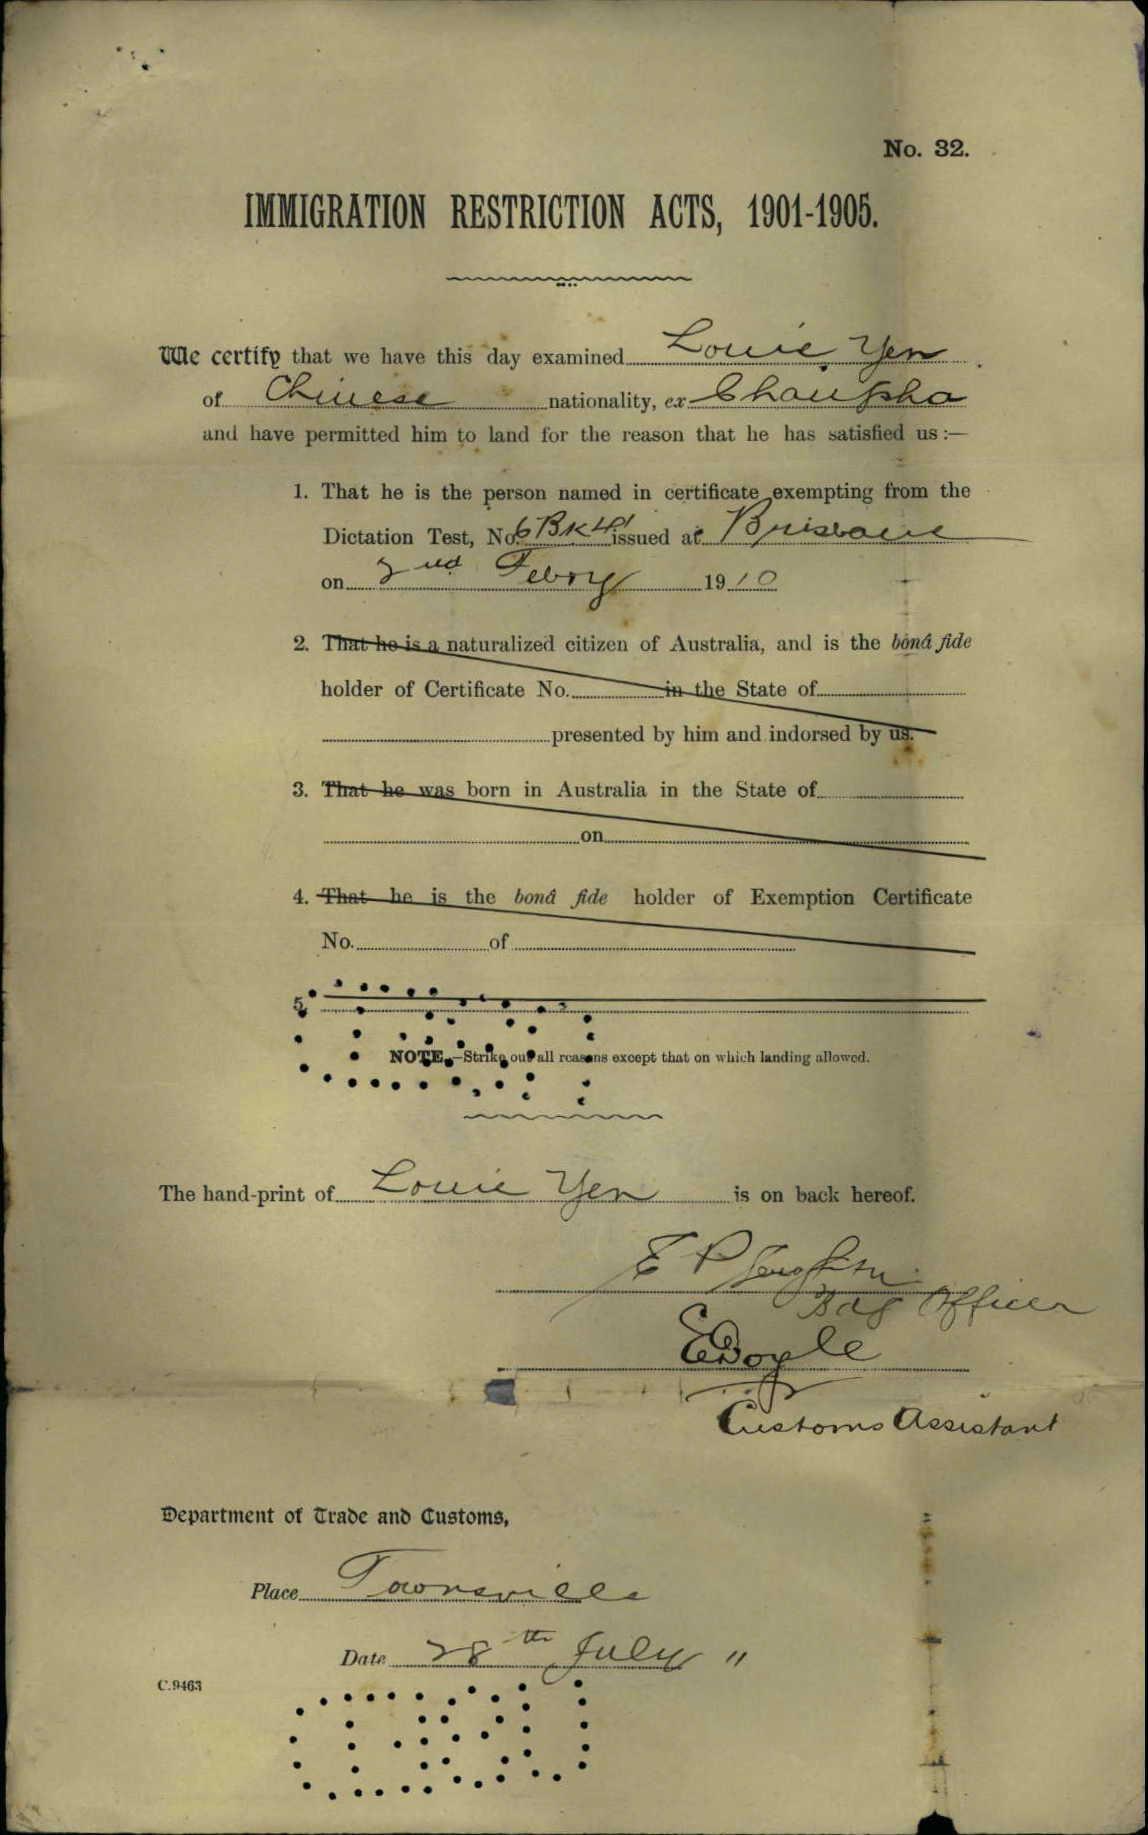 No. 32.
IMMIGRATION RESTRICTION ACTS, 1901-1905.
We certify that we have this day examined Louie Yen
of Chinese nationality, ex
and have permitted him to land for the reason that he has satisfied us :—
1. That he is the person named in certificate exempting from the
Dictation Test, No. issued at Brisbane
on 2nd Febry 1910
2. That he is a naturalized citizen of Australia, and is the bonâ fide
holder of Certificate No. in the State of
presented by him and indorsed by us.
3. That he was born in Australia in the State of
on
4. That he is the bonâ fide holder of Exemption Certificate
No. of
5.
NOTE.—Strike out all reasons except that on which landing allowed.
The hand-print of Louie Yen is on back hereof.
E P
Officer
EDoyle
Customs Assistant
Department of Trade and Customs,
Place Townsville
Date 28th July "
C.9463